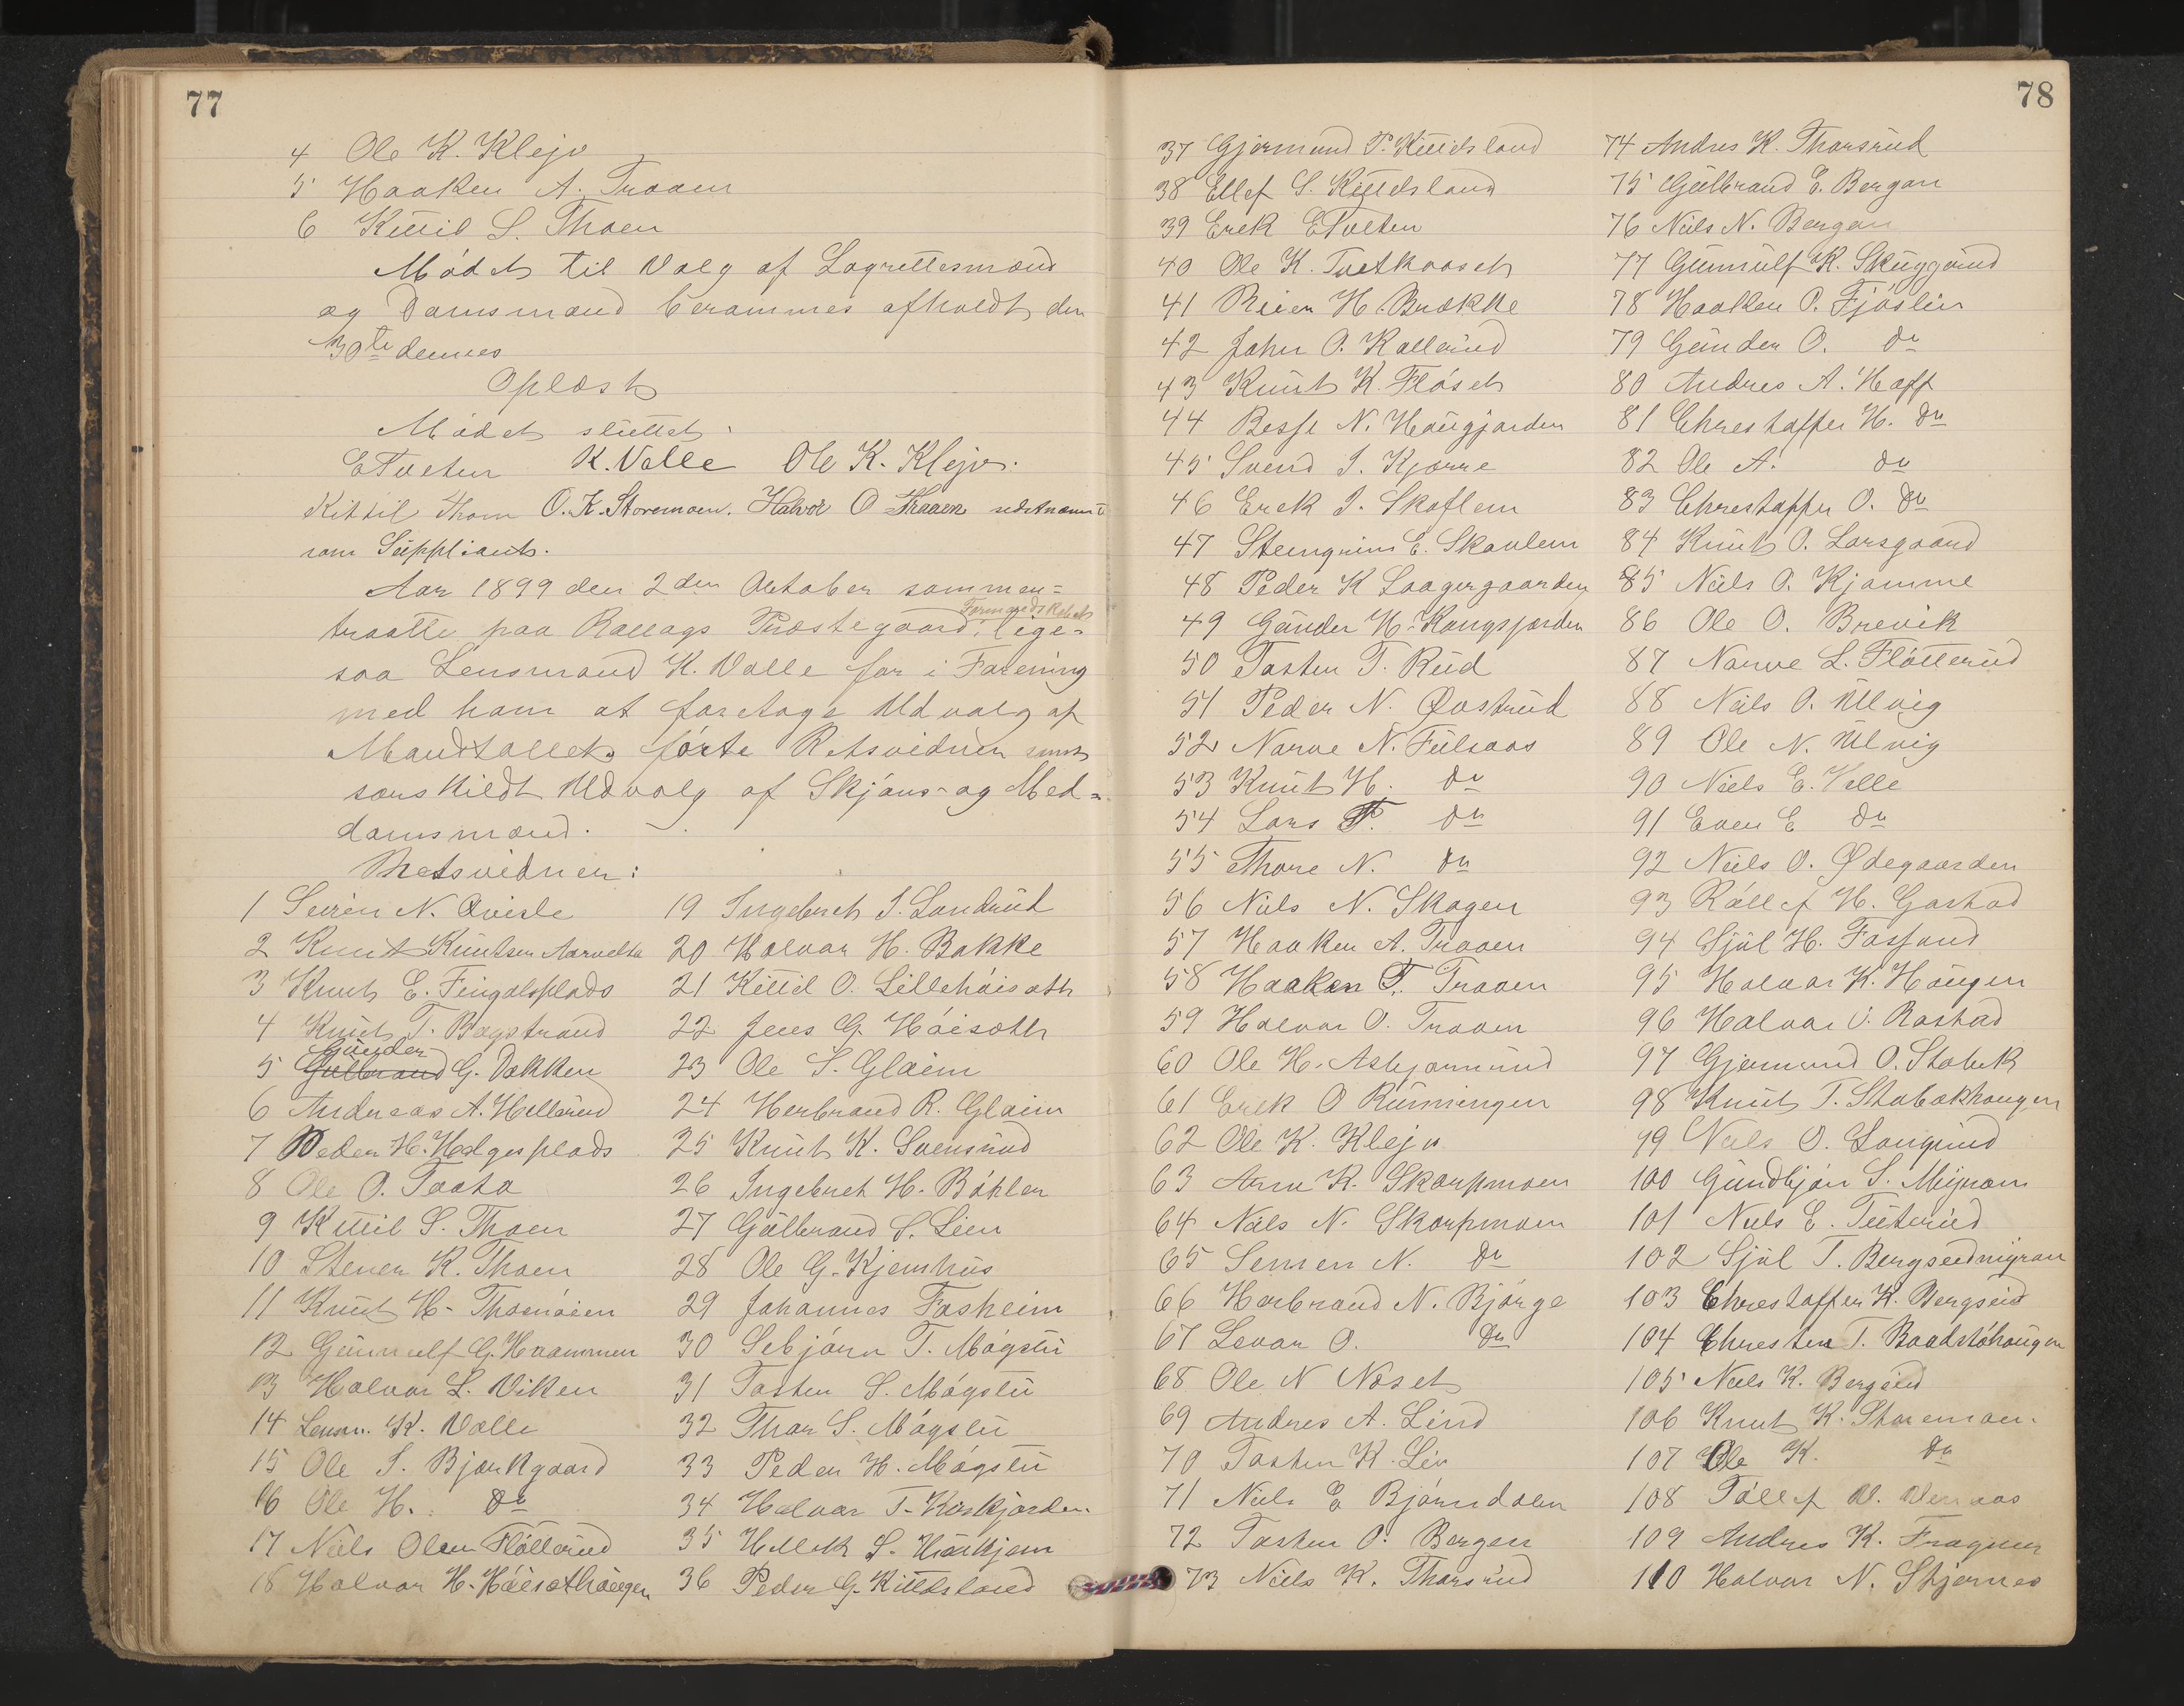 77
4 Ole K. Klejv
5 Haaken A. Traaen
6 Kittil S. Thoen
Mødet til Valg af Lagrettesmænd
og Domsmænd berammes afholdt den
30te dennes
Oplæst
Mødet sluttet.
ETveten K. Valle Ole K. Klejv.
Kittil Thoen O. K. Storemoen. Halvor O Traaen
som Suppleant.
Aar 1899 den 2den Oktober sammen=
traatte paa Rollags Præstegaard Formandskabet lige=
saa Lensmand K. Valle for i Forening
med ham at foretage Udvalg af
Mandtallets førte Retsvidner samt
særskildt Udvalg af Skjøns- og Med=
domsmænd.
Retsvidner:
1 Søren N. Qvisle
2 Knut Knutsen Aarvelta
3 Knut E. Fingalsplads
4 Knut T. Bagstrand
5 Gulbrand Gunder G. Dokken
6 Andreas A. Hellerud
7 Peder H. Helgesplads
8 Ole O. Taata
9 Kittil S. Thoen
10 Stener K. Thoen
11 Knut H. Thoenøien
12 Gunnulf G. Haammen
13 Halvor L. Viken
14 Lensm. K. Valle
15 Ole S. Bjørkgaard
16 Ole H. Do
17 Niels Olsen Fløtterud
18 Halvor H. Høisæthaugen
19 Ingebret S. Landrud
20 Halvor H. Bakke
21 Kittil O. Lillehøisæth
22 Jens G. Høisæth
23 Ole S. Glaim
24 Herbrand R. Glaim
25 Knut K. Svensrud
26 Ingebret H. Bøhler
27 Gulbrand S. Lien
28 Ole G. Kjemhus
29 Johannes Fosheim
30 Sebjørn T. Møgslu
31 Tosten S. Møgslu
32 Thor S. Møgslu
33 Peder H. Møgslu
34 Halvor T. Koskjorden
35 Hellek S.
36 Peder G. Kittelsland
78
37 Gjermund P. Kittelsland
38 Ellef S. Kittelsland
39 Erek ETveten
40 Ole K. Tvetkaaset
41 Reier H. Brække
42 John O. Kollerud
43 Knut K. Flåset
44 Besse N. Haugjorden
45 Svend S. Kjørre
46 Erek I. Skoflem
47 Stengrim E. Skavlem
48 Peder K Laagergaarden
49 Gunder H. Kongsjorden
50 Tosten T. Rud
51 Peder N. Qvstrud
52 Narve N. Fulsaas
53 Knut H. Do
54 Lars T. Do
55 Thore N. Do
56 Niels N. Skogen
57 Haaken A. Traaen
58 Haaken T. Traaen
59 Halvor O. Traaen
60 Ole H. Asbjørnrud
61 Erek O Runningen
62 Ole K. Klejv
63 Arne K. Skarpmoen
64 Niels N. Skarpmoen
65 Sensen N. Do
66 Herbrand N. Bjørge
67 Levor O. Do
68 Ole N Næset
69 Andres A. Lind
70 Tosten K. Liv
71 Niels E Bjørndalen
72 Tosten O. Bergen
73 Niels K. Thorsrud
74 Andres K. Thorsrud
75 Gulbrand E. Bergan
76 Niels N. Bergan
77 Gunnulf K. Skuggerud
78 Haaken O. Fjøslin
79 Gunder O. Do
80 Andres A. Hoff
81 Chrestoffer H. Do
82 Ole A. Do
83 Chrestoffer O. Do
84 Knut O. Larsgaard
85 Niels O. Kjomme
86 Ole O. Brevik
87 Narve L. Fløtterud
88 Niels O. Ulvig
89 Ole N. Ulvig
90 Niels E. Velle
91 Even E Do
92 Niels O. Ødegaarden
93 Røllef H. Gastad
94 Sjul H. Fosjand
95 Halvor K. Haugen
96 Halvor O. Rostad
97 Gjermund O. Stabek
98 Knut T. Stabækhaugen
99 Niels O. Langerud
100 Gundbjør S. Myran
101 Niels E. Tuterud
102 Sjul T. Bergseidmyran
103 Chrestoffer K. Bergseid
104 Chresten T. Baadstøhaugen
105 Niels K. Bergseid
106 Knut K. Storemoen.
107 Ole K. Do
108 Tøllef
109 Andres K. Fragner
110 Halvor N. Stjernes